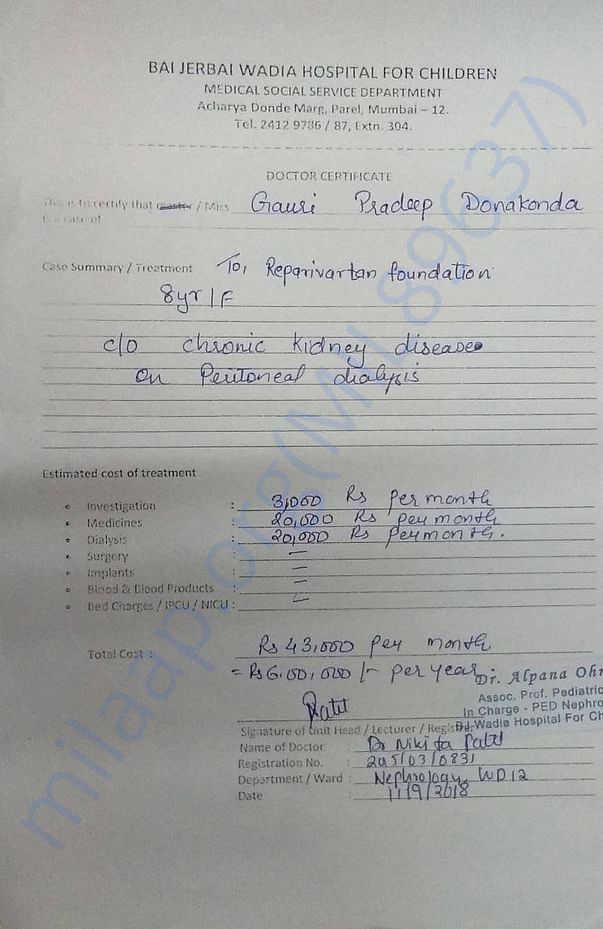 BAI JERBAI WADIA HOSPITAL FOR CHILDREN
MEDICAL SOCIAL SERVICE DEPARTMENT
Acharya Donde Marg, Parel, Mumbai – 12.
Tel. 2412 9786 / 87, Extn. 304.
DOCTOR CERTIFICATE
This is to certify that master / Miss Gauri Pradeep Donakonda
is a case of
Case Summary / Treatment To, Reparivartan foundation
8yr/F
c/o chronic kidney disease
on Peritoneal dialysis
Estimated cost of treatment
• Investigation : 3,000 Rs per month
• Medicines : 20,000 Rs per month
• Dialysis : 20,000 Rs per month.
• Surgery : —
• Implants : —
• Blood & Blood Products : —
• Bed Charges / IPCU / NICU : —
Total Cost : Rs 43,000 per month
= Rs 6,00,000 /- per year
Dr. Alpana Ohr
Assoc. Prof. Pediatric
In Charge - PED Nephro
B.J. Wadia Hospital For Ch
Patil
Signature of Unit Head / Lecturer / Regist
Name of Doctor : Dr Nikita Patil
Registration No. : 2015/03/0831
Department / Ward : Nephrology, WD 12
Date : 11/9/2018
milaap.org(MIL89637)